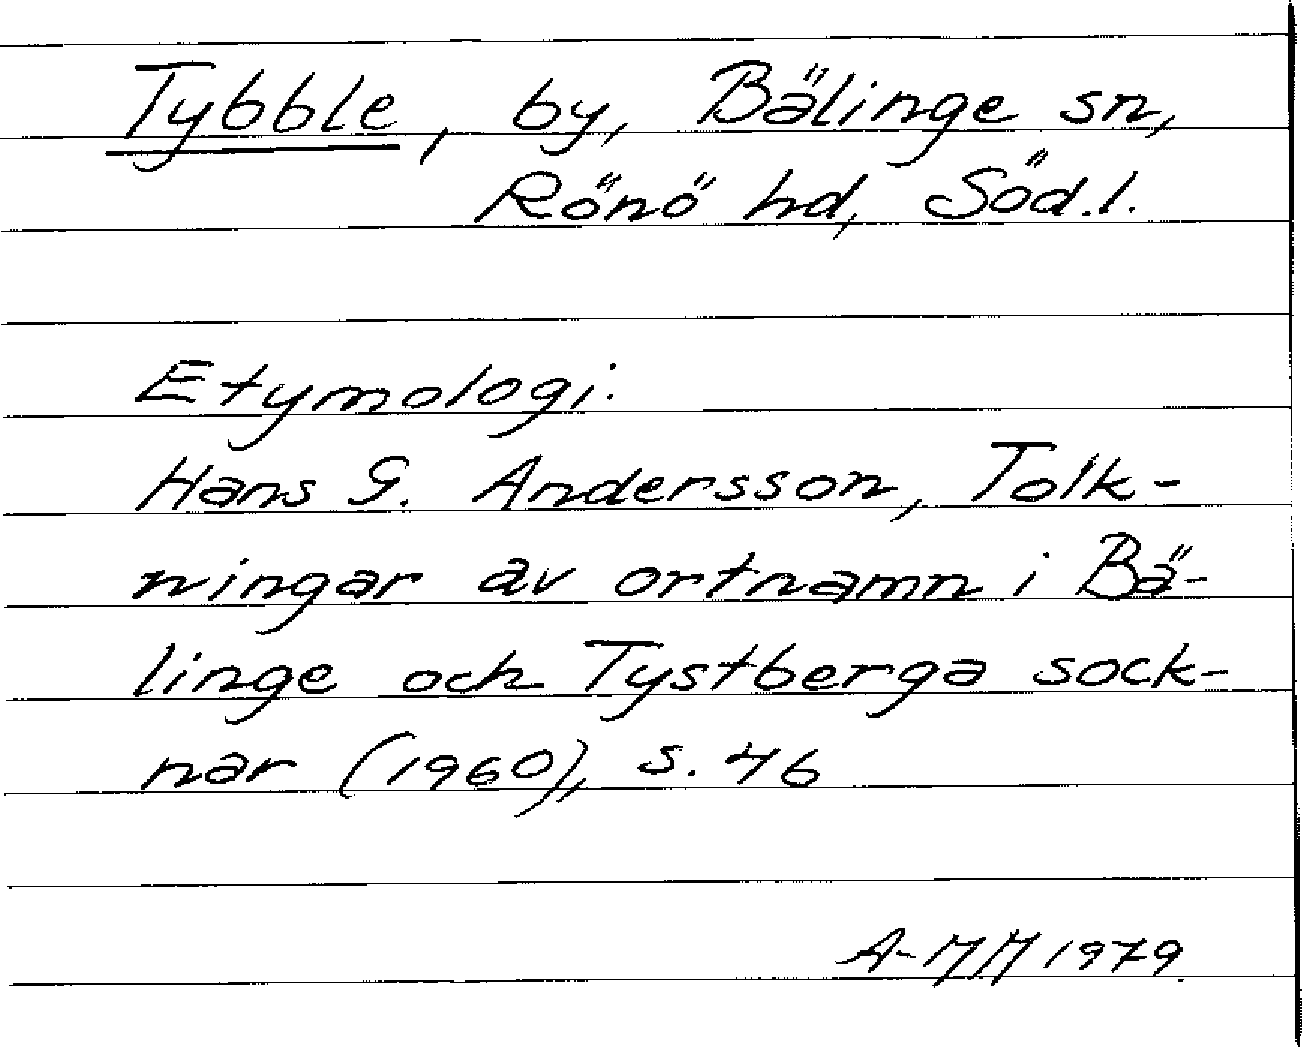 Tybble, by, Bälinge sn,
Rönö hd, Söd.l.
Etymologi:
Hans G. Andersson, Tolk-
ningar av ortnamn i Bä-
linge och Tystberga sock-
nar (1960), s. 46
A-MM 1979